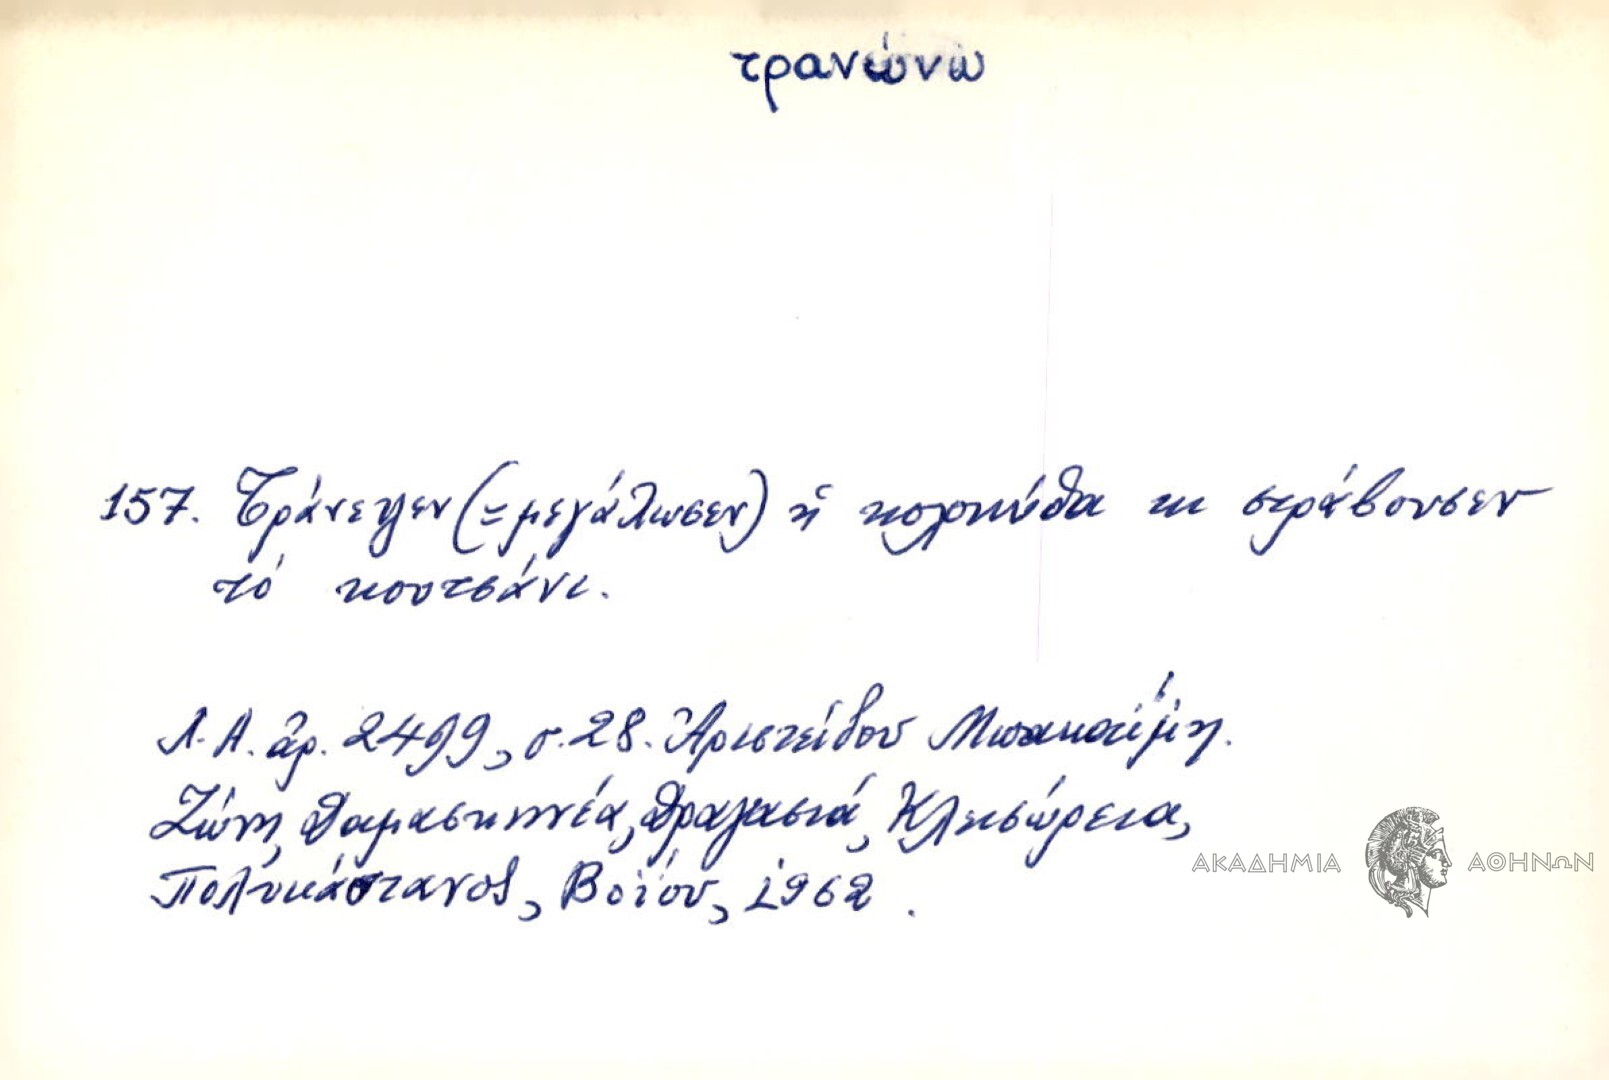 τρανώνω
157. Τράνεψεν (= μεγάλωσεν) ἡ κολοκύθα κι στράβουσεν
τό κουτσάνι.
Λ.Α. ἀρ. 2499, σ. 28. Ἀριστείδου
Ζώνη, Δαμασκηνέα, Δραγασιά, Κλεισώρεια,
Πολυκάστανος, Βοΐου, 1962.
ΑΚΑΔΗΜΙΑ ΑΘΗΝΩΝ